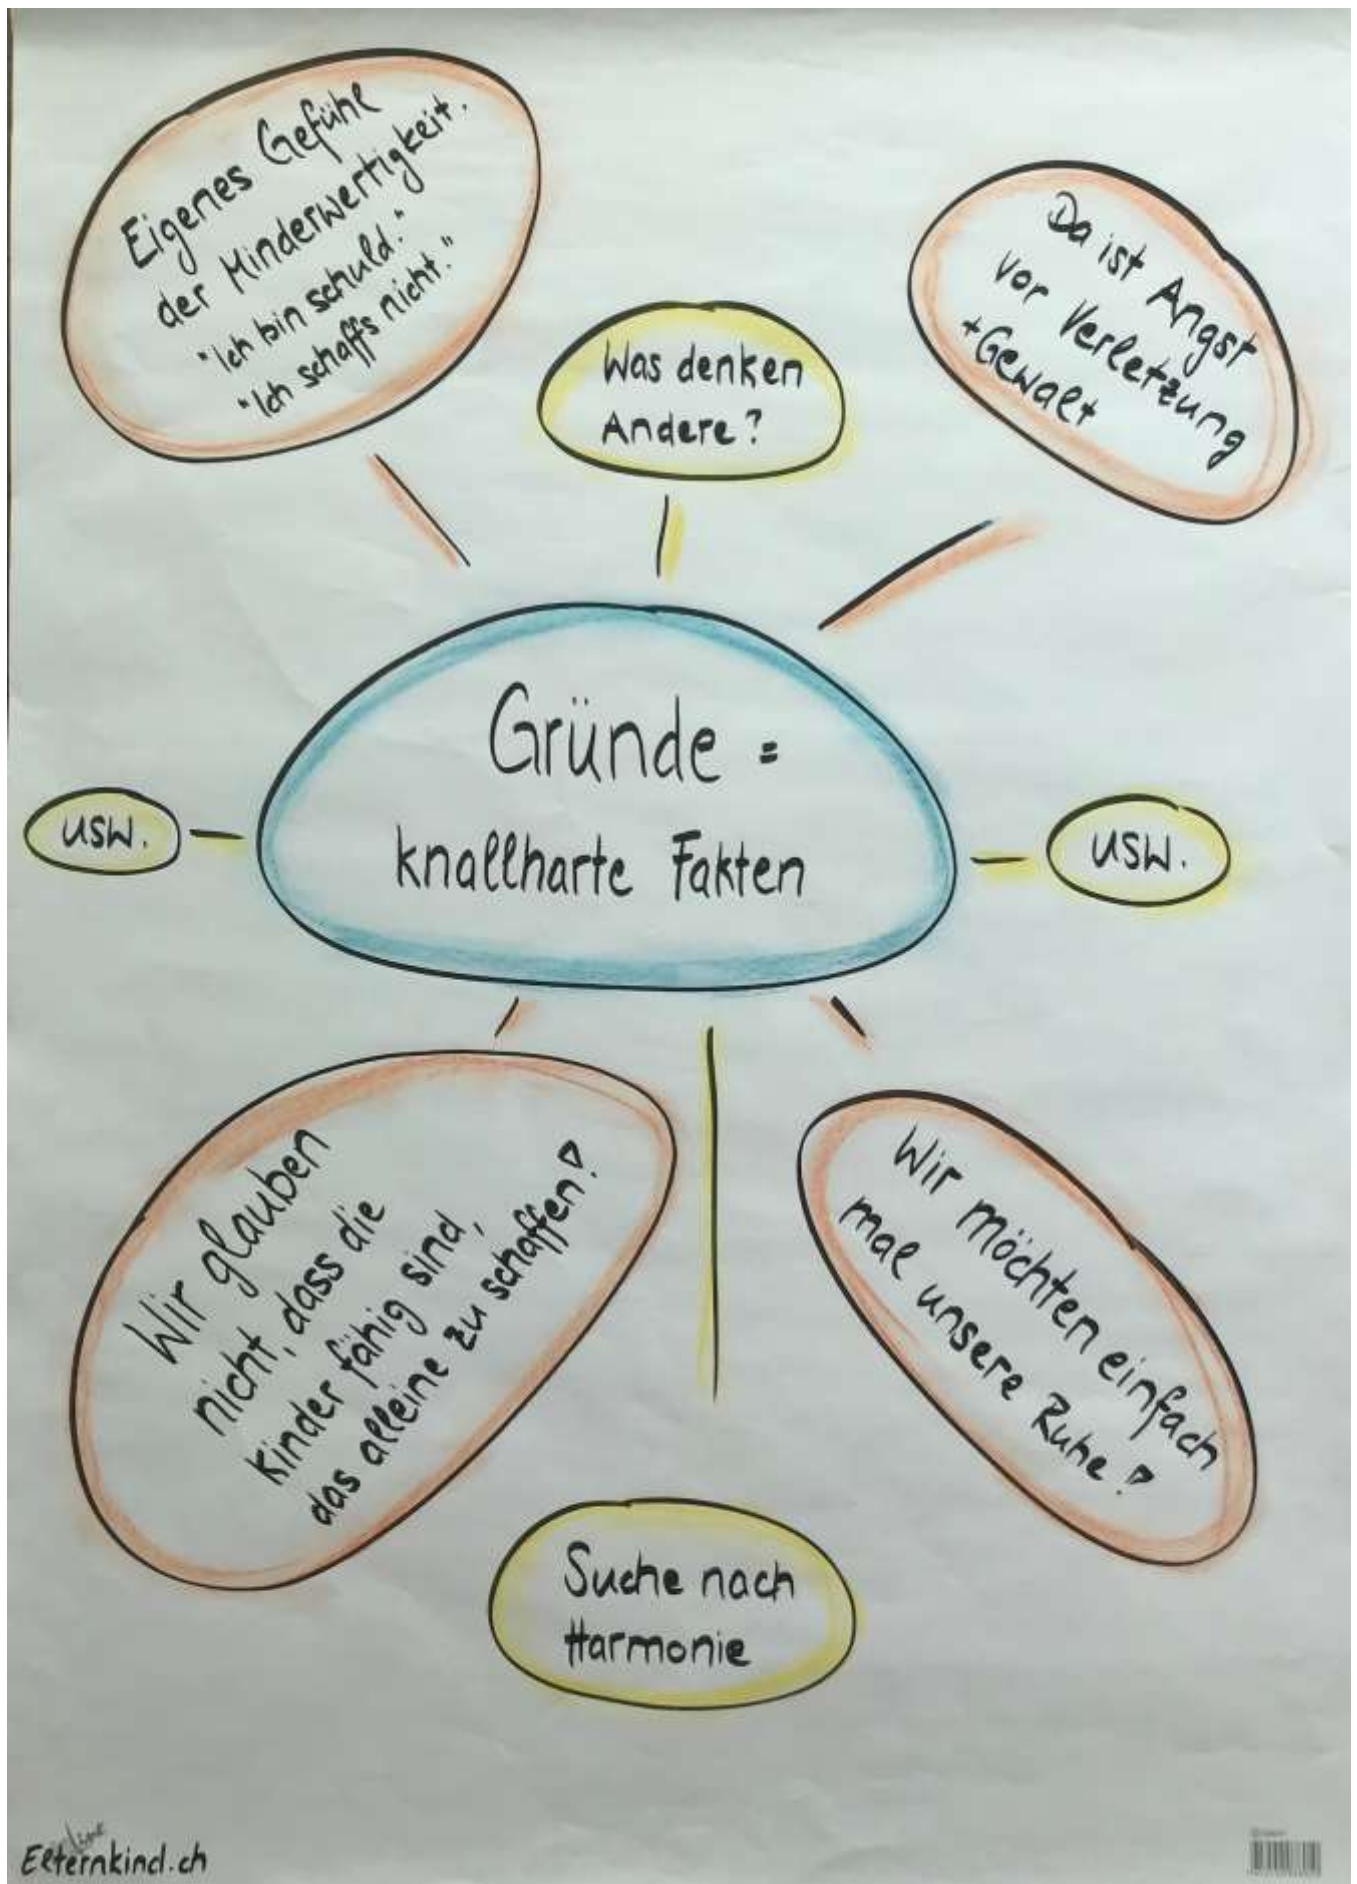 Eigenes Gefühl
der Minderwertigkeit.
"Ich bin schuld."
"Ich schaffs nicht."
Was denken
Andere?
Da ist Angst
vor Verletzung
+Gewalt
Gründe =
knallharte Fakten
usw.
usw.
Wir glauben
nicht, dass die
Kinder fähig sind,
das alleine zu schaffen!
Wir möchten einfach
mal unsere Ruhe!
Suche nach
Harmonie
Elternkind.ch